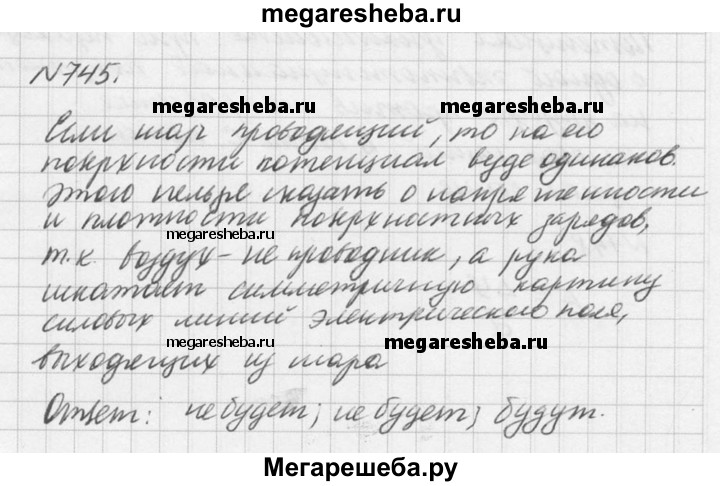 megaresheba.ru
N745.
megaresheba.ru megaresheba.ru
Если шар проводящий, то на его
поверхности потенциал везде одинаков.
Этого нельзя сказать о напряженности
и плотности поверхностных зарядов,
megaresheba.ru
т.к. воздух - не проводник, а рука
искажает симметричную картину
силовых линий электрического поля,
megaresheba.ru
выходящих из шара
Ответ: не будет; не будет; будут.
megaresheba.ru
Мегарешеба.ру